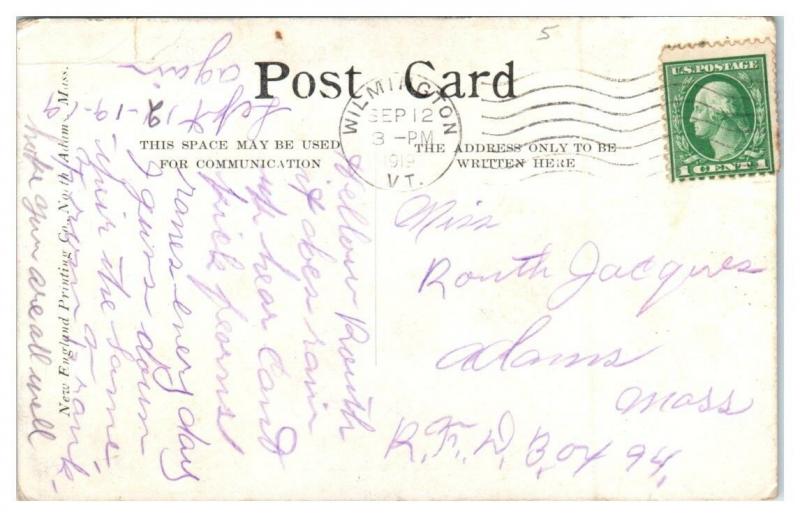 5
Post Card
U.S. POSTAGE
1 CENT 1
WILMINGTON
SEP 12
3 - PM
1919
VT.
THIS SPACE MAY BE USED
FOR COMMUNICATION
THE ADDRESS ONLY TO BE
WRITTEN HERE
New England Printing Co., North Adams, Mass.
Sept 12-19-19
Hellow Routh
it does rain
up hear Cand
pick fearns
ranes energy day
I guess down
their the same.
From
again
hope you are all well
Miss
Routh Jacques
Adams
Mass
R.F.D. Box 94.